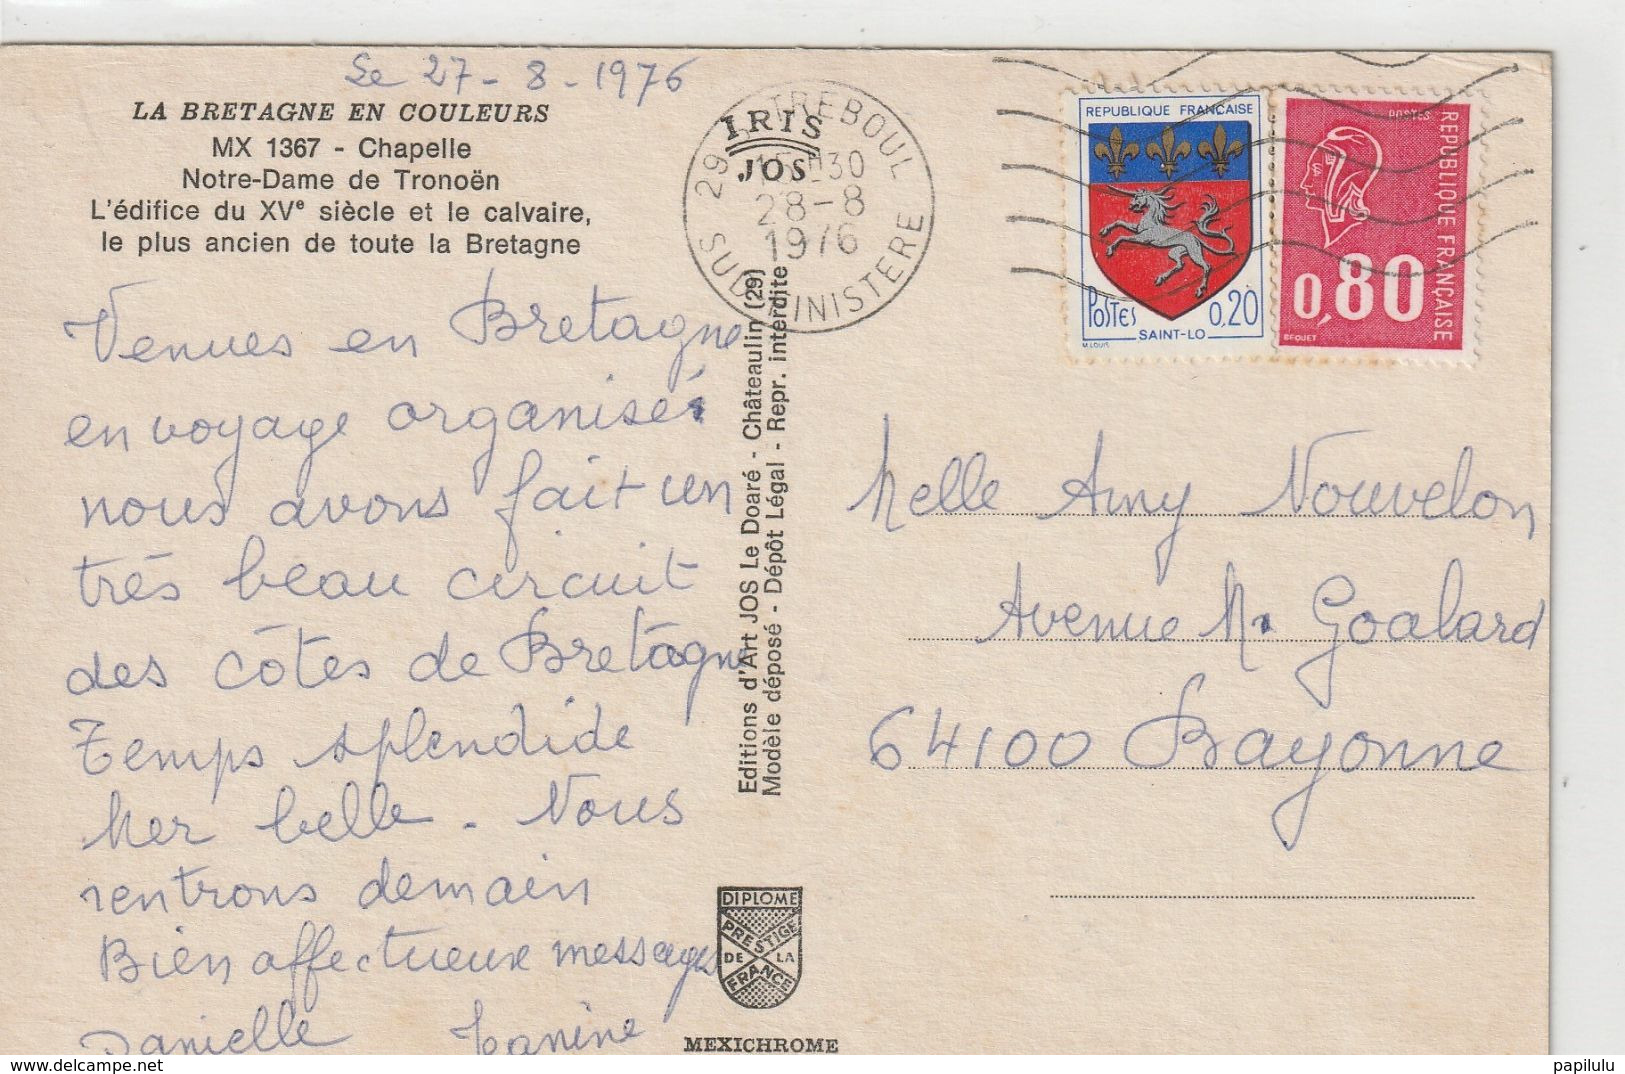 Le 27-8-1976
LA BRETAGNE EN COULEURS
MX 1367 - Chapelle
Notre-Dame de Tronoën
L'édifice du XVe siècle et le calvaire,
le plus ancien de toute la Bretagne
Venues en Bretagne
en voyage organisé
nous avons fait un
très beau circuit
des côtes de Bretagne
Temps splendide
Mer belle. Nous
rentrons demain
Bien affectueux messages
Danielle Janine
IRIS
JOS
29 TREBOUL
15H30
28-8
1976
SUD FINISTERE
Editions d'Art JOS Le Doaré - Châteaulin (29)
Modèle déposé - Dépôt Légal - Repr. interdite
DIPLOME
PRESTIGE
DE LA
FRANCE
MEXICHROME
REPUBLIQUE FRANÇAISE
POSTES 0,20
SAINT-LO
M.LOUIS
POSTES
REPUBLIQUE FRANÇAISE
0,80
BEQUET
Melle Amy Nouvelon
Avenue M. Goalard
64100 Bayonne
papilulu